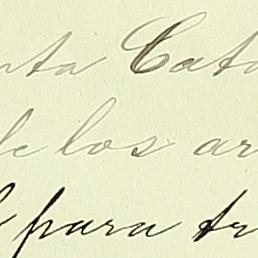 nta Cata
de los ar
para tr